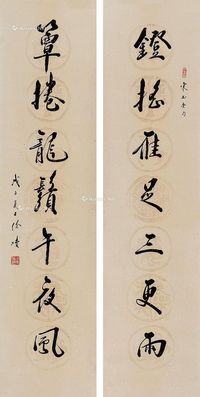 鐙搖雁足三更雨
簟捲龍鬚午夜風